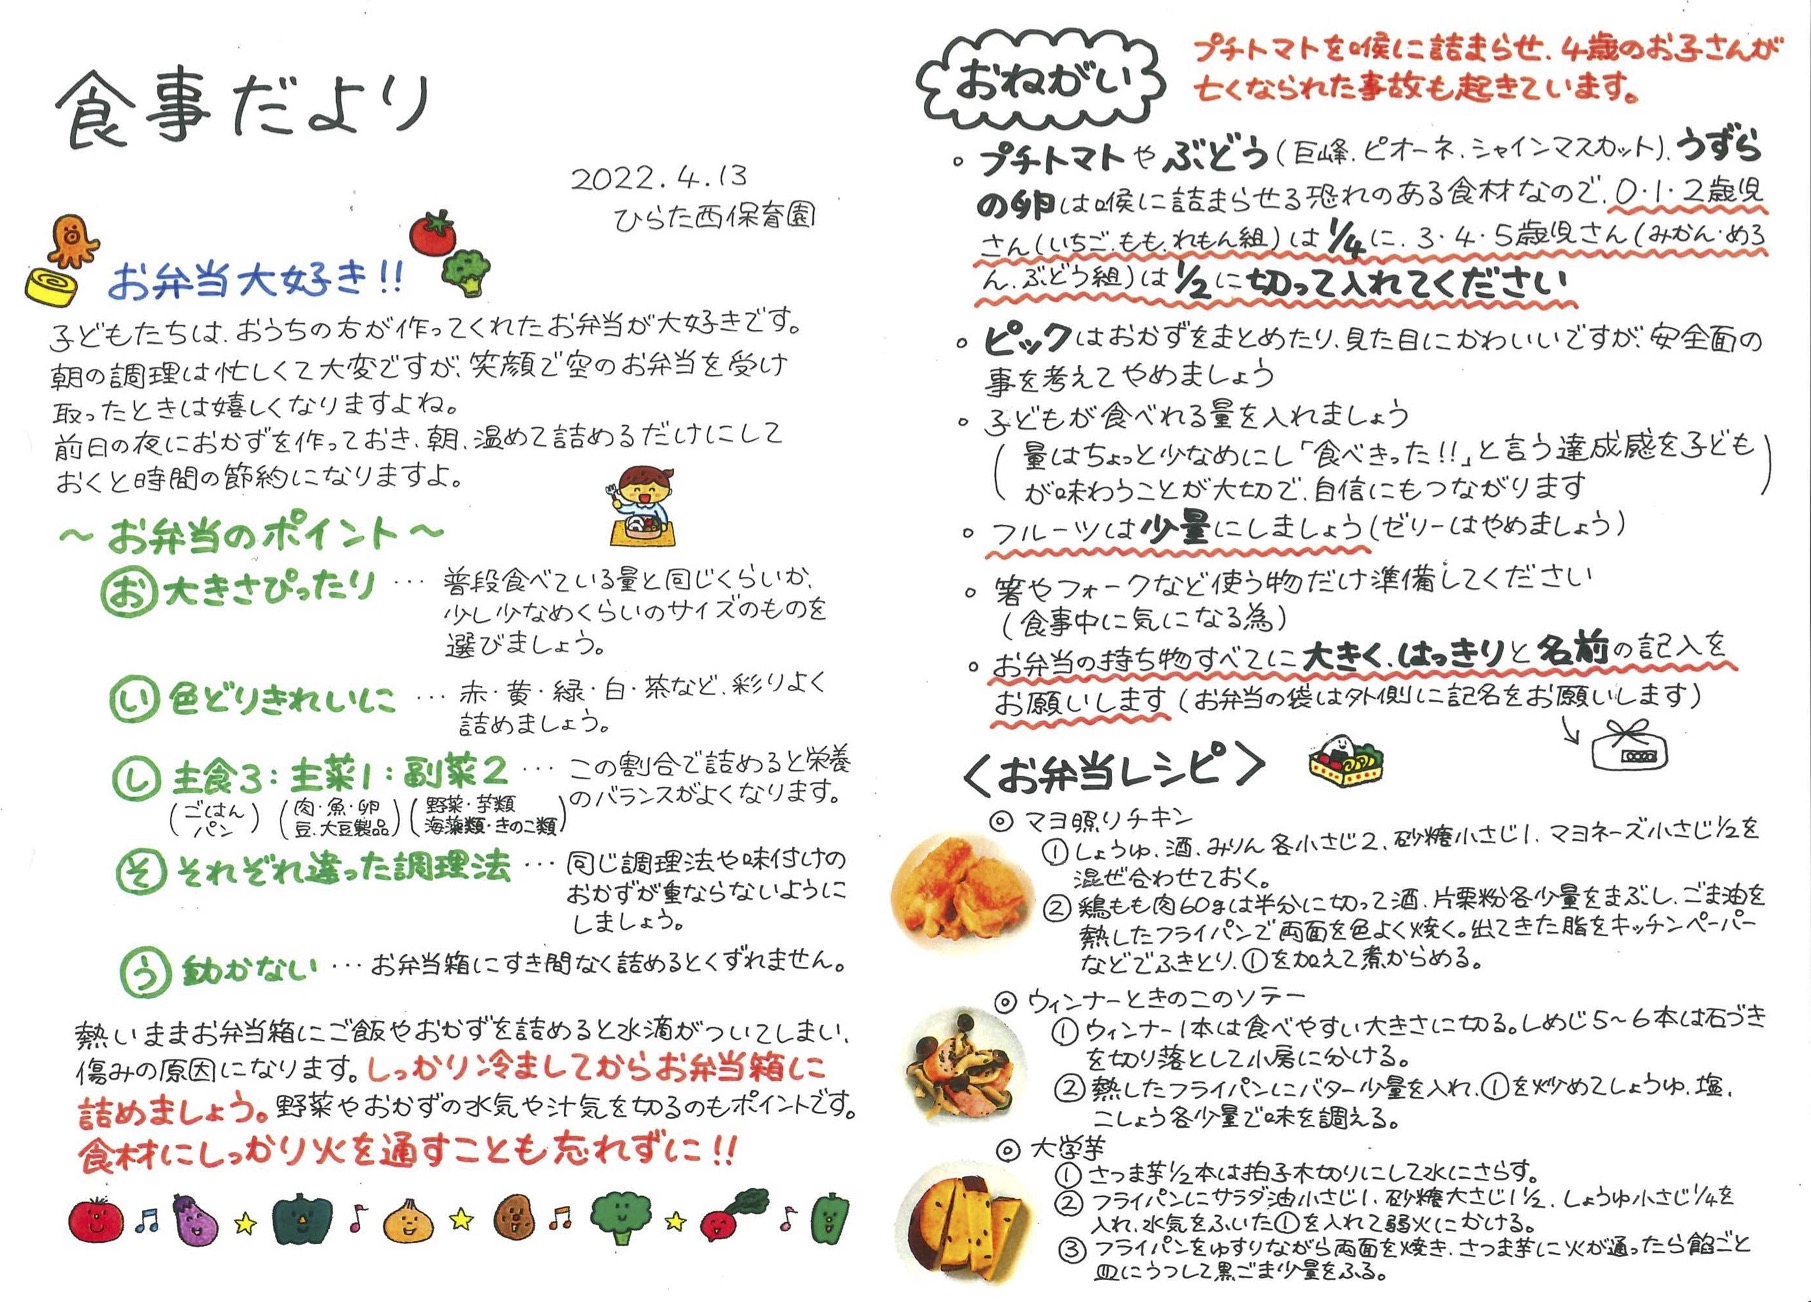 食事だより
2022.4.13
ひらた西保育園
お弁当大好き!!
子どもたちは、おうちの方が作ってくれたお弁当が大好きです。
朝の調理は忙しくて大変ですが、笑顔で空のお弁当を受け
取ったときは嬉しくなりますよね。
前日の夜におかずを作っておき、朝、温めて詰めるだけにして
おくと時間の節約になりますよ。
～お弁当のポイント～
お 大きさぴったり … 普段食べている量と同じくらいか、
少し少なめくらいのサイズのものを
選びましょう。
い 色どりきれいに … 赤・黄・緑・白・茶など、彩りよく
詰めましょう。
し 主食3:主菜1:副菜2 … この割合で詰めると栄養
のバランスがよくなります。
(ごはん パン) (肉・魚・卵 豆、大豆製品) (野菜・芋類 海藻類・きのこ類)
そ それぞれ違った調理法 … 同じ調理法や味付けの
おかずが重ならないように
しましょう。
う 動かない … お弁当箱にすき間なく詰めるとくずれません。
熱いままお弁当箱にご飯やおかずを詰めると水滴がついてしまい、
傷みの原因になります。しっかり冷ましてからお弁当箱に
詰めましょう。野菜やおかずの水気や汁気を切るのもポイントです。
食材にしっかり火を通すことも忘れずに!!
おねがい
プチトマトを喉に詰まらせ、4歳のお子さんが
亡くなられた事故も起きています。
。プチトマトやぶどう(巨峰、ピオーネ、シャインマスカット)、うずら
の卵は喉に詰まらせる恐れのある食材なので、0・1・2歳児
さん(いちご、もも、れもん組)は1/4に、3・4・5歳児さん(みかん・めろ
ん、ぶどう組)は1/2に切って入れてください
。ピックはおかずをまとめたり、見た目にかわいいですが、安全面の
事を考えてやめましょう
。子どもが食べれる量を入れましょう
(量はちょっと少なめにし「食べきった!!」と言う達成感を子ども
が味わうことが大切で、自信にもつながります)
。フルーツは少量にしましょう(ゼリーはやめましょう)
。箸やフォークなど使う物だけ準備してください
(食事中に気になる為)
。お弁当の持ち物すべてに大きく、はっきりと名前の記入を
お願いします(お弁当の袋は外側に記名をお願いします)
〈お弁当レシピ〉
◎ マヨ照りチキン
①しょうゆ、酒、みりん各小さじ2、砂糖小さじ1、マヨネーズ小さじ1/2を
混ぜ合わせておく。
②鶏もも肉60gは半分に切って酒、片栗粉各少量をまぶし、ごま油を
熱したフライパンで両面を色よく焼く。出てきた脂をキッチンペーパー
などでふきとり、①を加えて煮からめる。
◎ ウィンナーときのこのソテー
①ウィンナー1本は食べやすい大きさに切る。しめじ5～6本は石づき
を切り落として小房に分ける。
②熱したフライパンにバター少量を入れ、①を炒めてしょうゆ、塩、
こしょう各少量で味を調える。
◎ 大学芋
①さつま芋1/2本は拍子木切りにして水にさらす。
②フライパンにサラダ油小さじ1、砂糖大さじ1 1/2、しょうゆ小さじ1/4を
入れ、水気をふいた①を入れて弱火にかける。
③フライパンをゆすりながら両面を焼き、さつま芋に火が通ったら餡ごと
皿にうつして黒ごま少量をふる。